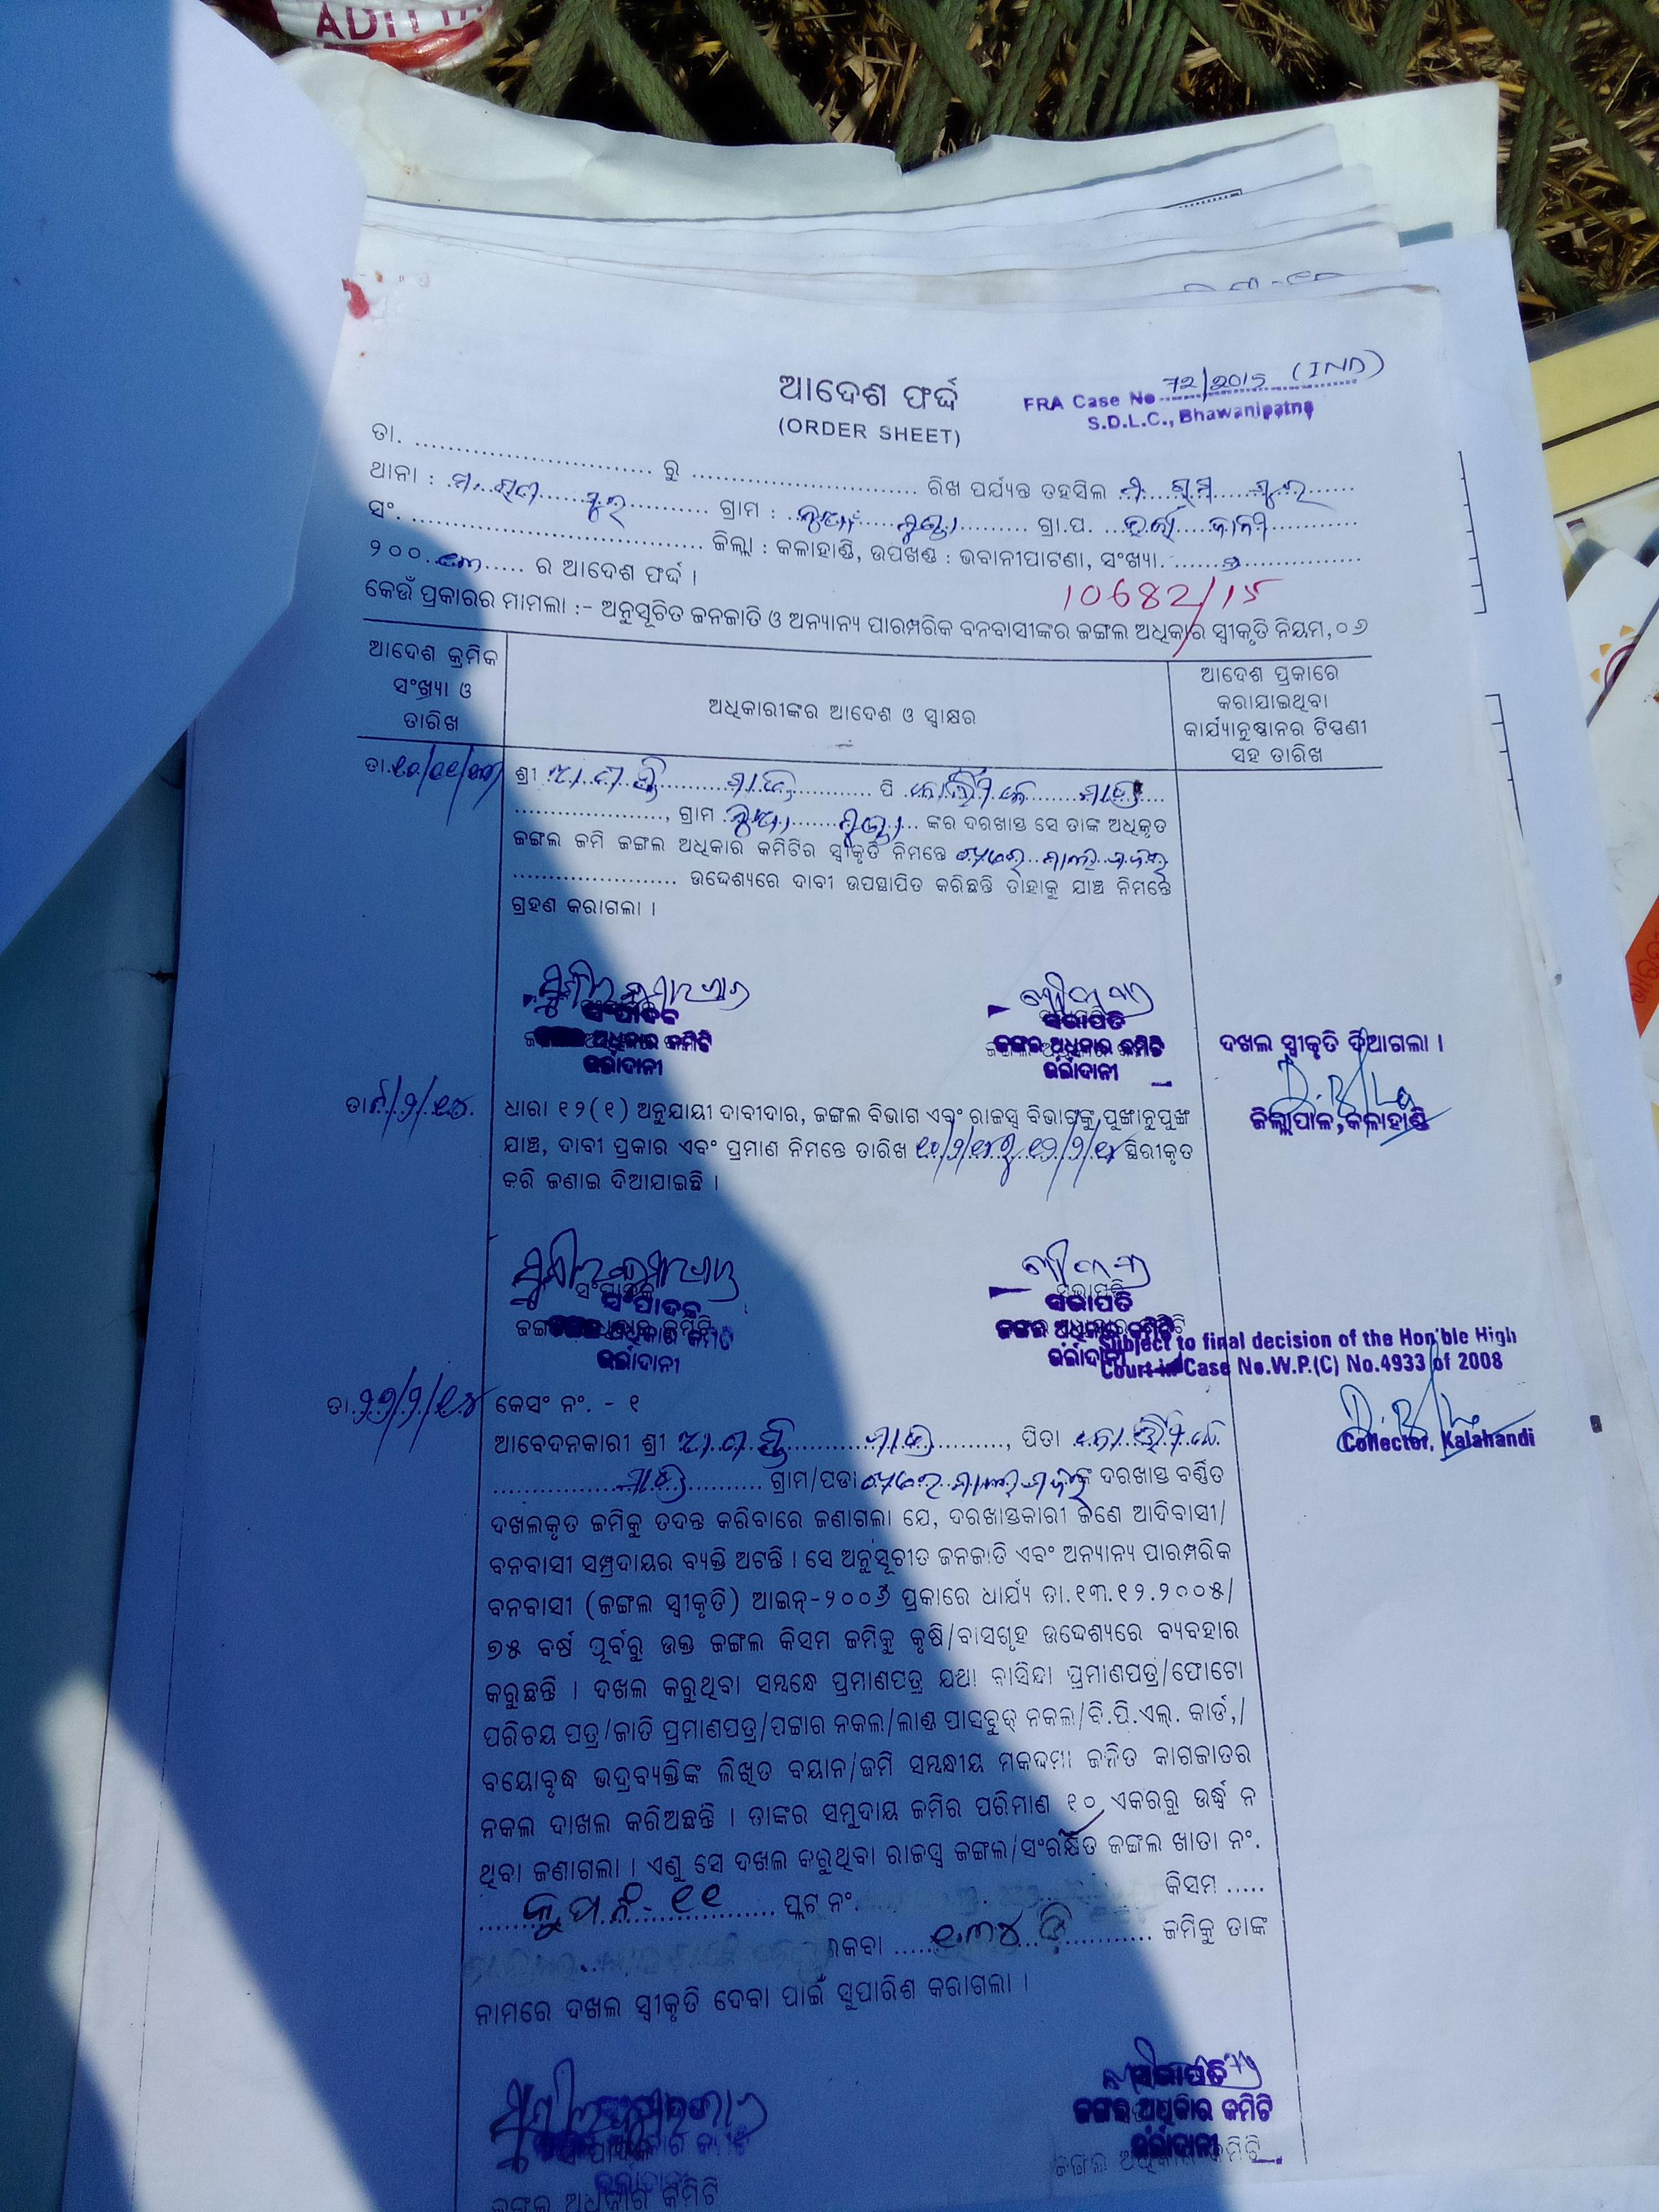 ADITYA
ଆଦେଶ ଫର୍ଦ୍ଦ
(ORDER SHEET)
FRA Case No 72/2015 (IND)
S.D.L.C., Bhawanipatna
ତା. ............ ରୁ ............ ରିଖ ପର୍ଯ୍ୟନ୍ତ ତହସିଲ
ଥାନା : ଗ୍ରାମ : ନୁଆଁ ଗ୍ରା.ପ.
ସଂ. ............ ଜିଲ୍ଲା : କଳାହାଣ୍ଡି, ଉପଖଣ୍ଡ : ଭବାନୀପାଟଣା, ସଂଖ୍ୟା.
୨୦୦ ୧୩ ର ଆଦେଶ ଫର୍ଦ୍ଦ ।
10682/15
କେଉଁ ପ୍ରକାରର ମାମଲା :- ଅନୁସୂଚିତ ଜନଜାତି ଓ ଅନ୍ୟାନ୍ୟ ପାରମ୍ପରିକ ବନବାସୀଙ୍କର ଜଙ୍ଗଲ ଅଧିକାର ସ୍ୱୀକୃତି ନିୟମ,୦୬
ଆଦେଶ କ୍ରମିକ
ସଂଖ୍ୟା ଓ
ତାରିଖ
ଅଧିକାରୀଙ୍କର ଆଦେଶ ଓ ସ୍ୱାକ୍ଷର
ଆଦେଶ ପ୍ରକାରେ
କରାଯାଇଥିବା
କାର୍ଯ୍ୟାନୁଷ୍ଠାନର ଟିପ୍ପଣୀ
ସହ ତାରିଖ
ତା. ଶ୍ରୀ ମାଝି ପି ମାଝି
, ଗ୍ରାମ ଙ୍କର ଦରଖାସ୍ତ ସେ ତାଙ୍କ ଅଧିକୃତ
ଜଙ୍ଗଲ ଜମି ଜଙ୍ଗଲ ଅଧିକାର କମିଟିର ସ୍ୱୀକୃତି ନିମନ୍ତେ
............ ଉଦ୍ଦେଶ୍ୟରେ ଦାବୀ ଉପସ୍ଥାପିତ କରିଛନ୍ତି ତାହାକୁ ଯାଞ୍ଚ ନିମନ୍ତେ
ଗ୍ରହଣ କରାଗଲା ।
ସଂପାଦକ
ଅଧିକାର କମିଟି
ଉର୍ଲାଦାନୀ
ସଭାପତି
ଜଙ୍ଗଲ ଅଧିକାର କମିଟି
ଉର୍ଲାଦାନୀ
ଦଖଲ ସ୍ୱୀକୃତି ଦିଆଗଲା ।
ଜିଲ୍ଲାପାଳ,କଳାହାଣ୍ଡି
ତା ଧାରା ୧୨(୧) ଅନୁଯାୟୀ ଦାବୀଦାର, ଜଙ୍ଗଲ ବିଭାଗ ଏବଂ ରାଜସ୍ୱ ବିଭାଗଙ୍କୁ ପୁଙ୍ଖାନୁପୁଙ୍ଖ
ଯାଞ୍ଚ, ଦାବୀ ପ୍ରକାର ଏବଂ ପ୍ରମାଣ ନିମନ୍ତେ ତାରିଖ ସ୍ଥିରୀକୃତ
କରି ଜଣାଇ ଦିଆଯାଇଛି ।
ସଂପାଦକ
ଅଧିକାର କମିଟି
ଉର୍ଲାଦାନୀ
ସଭାପତି
ଜଙ୍ଗଲ ଅଧିକାର କମିଟି
ଉର୍ଲାଦାନୀ
Subject to final decision of the Hon'ble High
Court in Case No.W.P.(C) No.4933 of 2008
Collector, Kalahandi
ତା. କେସଂ ନଂ. - ୧
ଆବେଦନକାରୀ ଶ୍ରୀ ମାଝି, ପିତା
ମାଝି ଗ୍ରାମ/ପଡା ଙ୍କ ଦରଖାସ୍ତ ବର୍ଣ୍ଣିତ
ଦଖଲକୃତ ଜମିକୁ ତଦନ୍ତ କରିବାରେ ଜଣାଗଲା ଯେ, ଦରଖାସ୍ତକାରୀ ଜଣେ ଆଦିବାସୀ/
ବନବାସୀ ସମ୍ପ୍ରଦାୟର ବ୍ୟକ୍ତି ଅଟନ୍ତି । ସେ ଅନୁସୂଚୀତ ଜନଜାତି ଏବଂ ଅନ୍ୟାନ୍ୟ ପାରମ୍ପରିକ
ବନବାସୀ (ଜଙ୍ଗଲ ସ୍ୱୀକୃତି) ଆଇନ୍-୨୦୦୬ ପ୍ରକାରେ ଧାର୍ଯ୍ୟ ତା.୧୩.୧୨.୨୦୦୫/
୭୫ ବର୍ଷ ପୂର୍ବରୁ ଉକ୍ତ ଜଙ୍ଗଲ କିସମ ଜମିକୁ କୃଷି/ବାସଗୃହ ଉଦ୍ଦେଶ୍ୟରେ ବ୍ୟବହାର
କରୁଛନ୍ତି । ଦଖଲ କରୁଥିବା ସମ୍ବନ୍ଧେ ପ୍ରମାଣପତ୍ର ଯଥା ବାସିନ୍ଦା ପ୍ରମାଣପତ୍ର/ଫୋଟୋ
ପରିଚୟ ପତ୍ର/ଜାତି ପ୍ରମାଣପତ୍ର/ପଟ୍ଟାର ନକଲ/ଲାଣ୍ଡ ପାସ୍‌ବୁକ୍ ନକଲ/ବି.ପି.ଏଲ୍. କାର୍ଡ,/
ବୟୋବୃଦ୍ଧ ଭଦ୍ରବ୍ୟକ୍ତିଙ୍କ ଲିଖିତ ବୟାନ/ଜମି ସମ୍ବନ୍ଧୀୟ ମକଦ୍ଦମା ଜନିତ କାଗଜାତର
ନକଲ ଦାଖଲ କରିଅଛନ୍ତି । ତାଙ୍କର ସମୁଦାୟ ଜମିର ପରିମାଣ ୧୦ ଏକରରୁ ଉର୍ଦ୍ଧ୍ୱ ନ
ଥିବା ଜଣାଗଲା । ଏଣୁ ସେ ଦଖଲ କରୁଥିବା ରାଜସ୍ୱ ଜଙ୍ଗଲ/ସଂରକ୍ଷିତ ଜଙ୍ଗଲ ଖାତା ନଂ.
ନଂ- ୧୧ ପ୍ଲଟ ନଂ. କିସମ .....
ରକବା ୧.୩୪ ଡି ଜମିକୁ ତାଙ୍କ
ନାମରେ ଦଖଲ ସ୍ୱୀକୃତି ଦେବା ପାଇଁ ସୁପାରିଶ କରାଗଲା ।
ସଂପାଦକ
ଜଙ୍ଗଲ ଅଧିକାର କମିଟି
ସଭାପତି
ଜଙ୍ଗଲ ଅଧିକାର କମିଟି
ଉର୍ଲାଦାନୀ
ଜଙ୍ଗଲ ଅଧିକାର କମିଟି